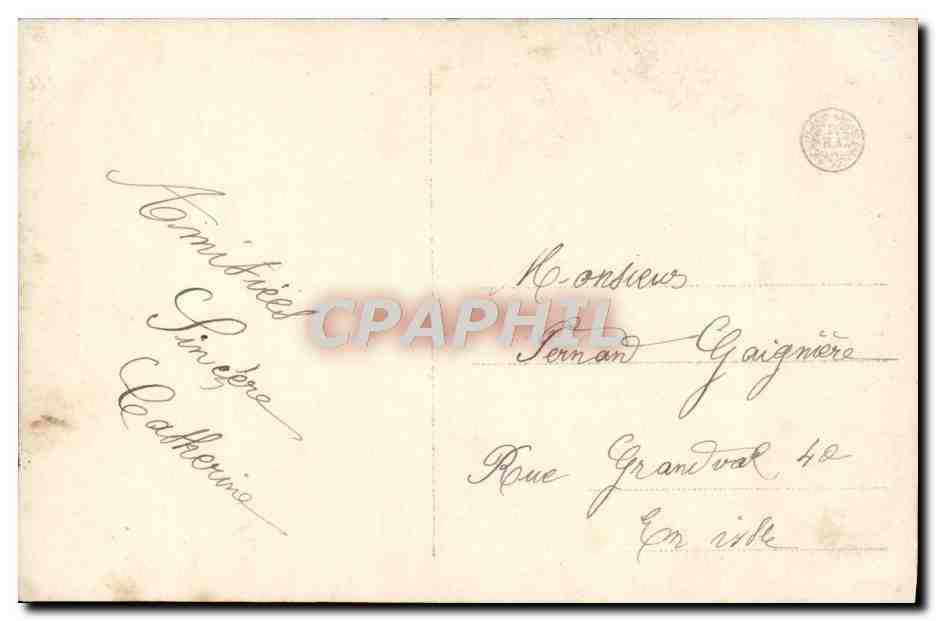 Amitiées
Sincère
Catherine
CPAPHIL
Monsieur
Fernand Gaignière
Rue Grandval 40
En